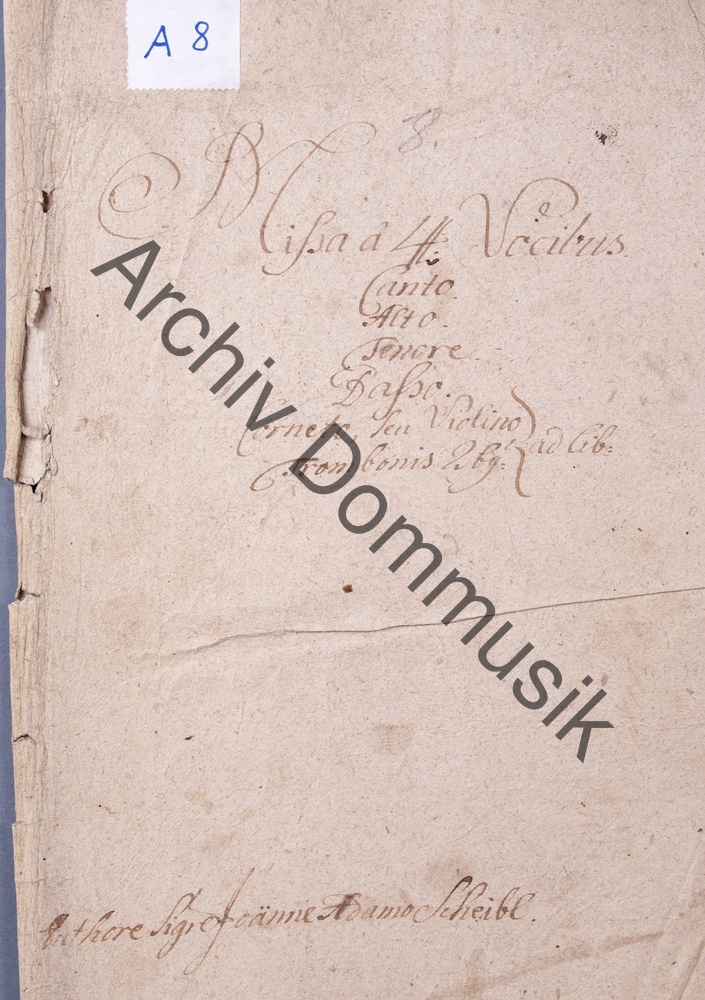 A 8
8.
Missa a 4. Vocibus.
Canto.
Alto.
Tenore.
Basso.
Corneto. seu Violino
Trombonis 2bq: ad lib:
Archiv Dommusik
Authore Sigre Joänne Adamo Scheibl.